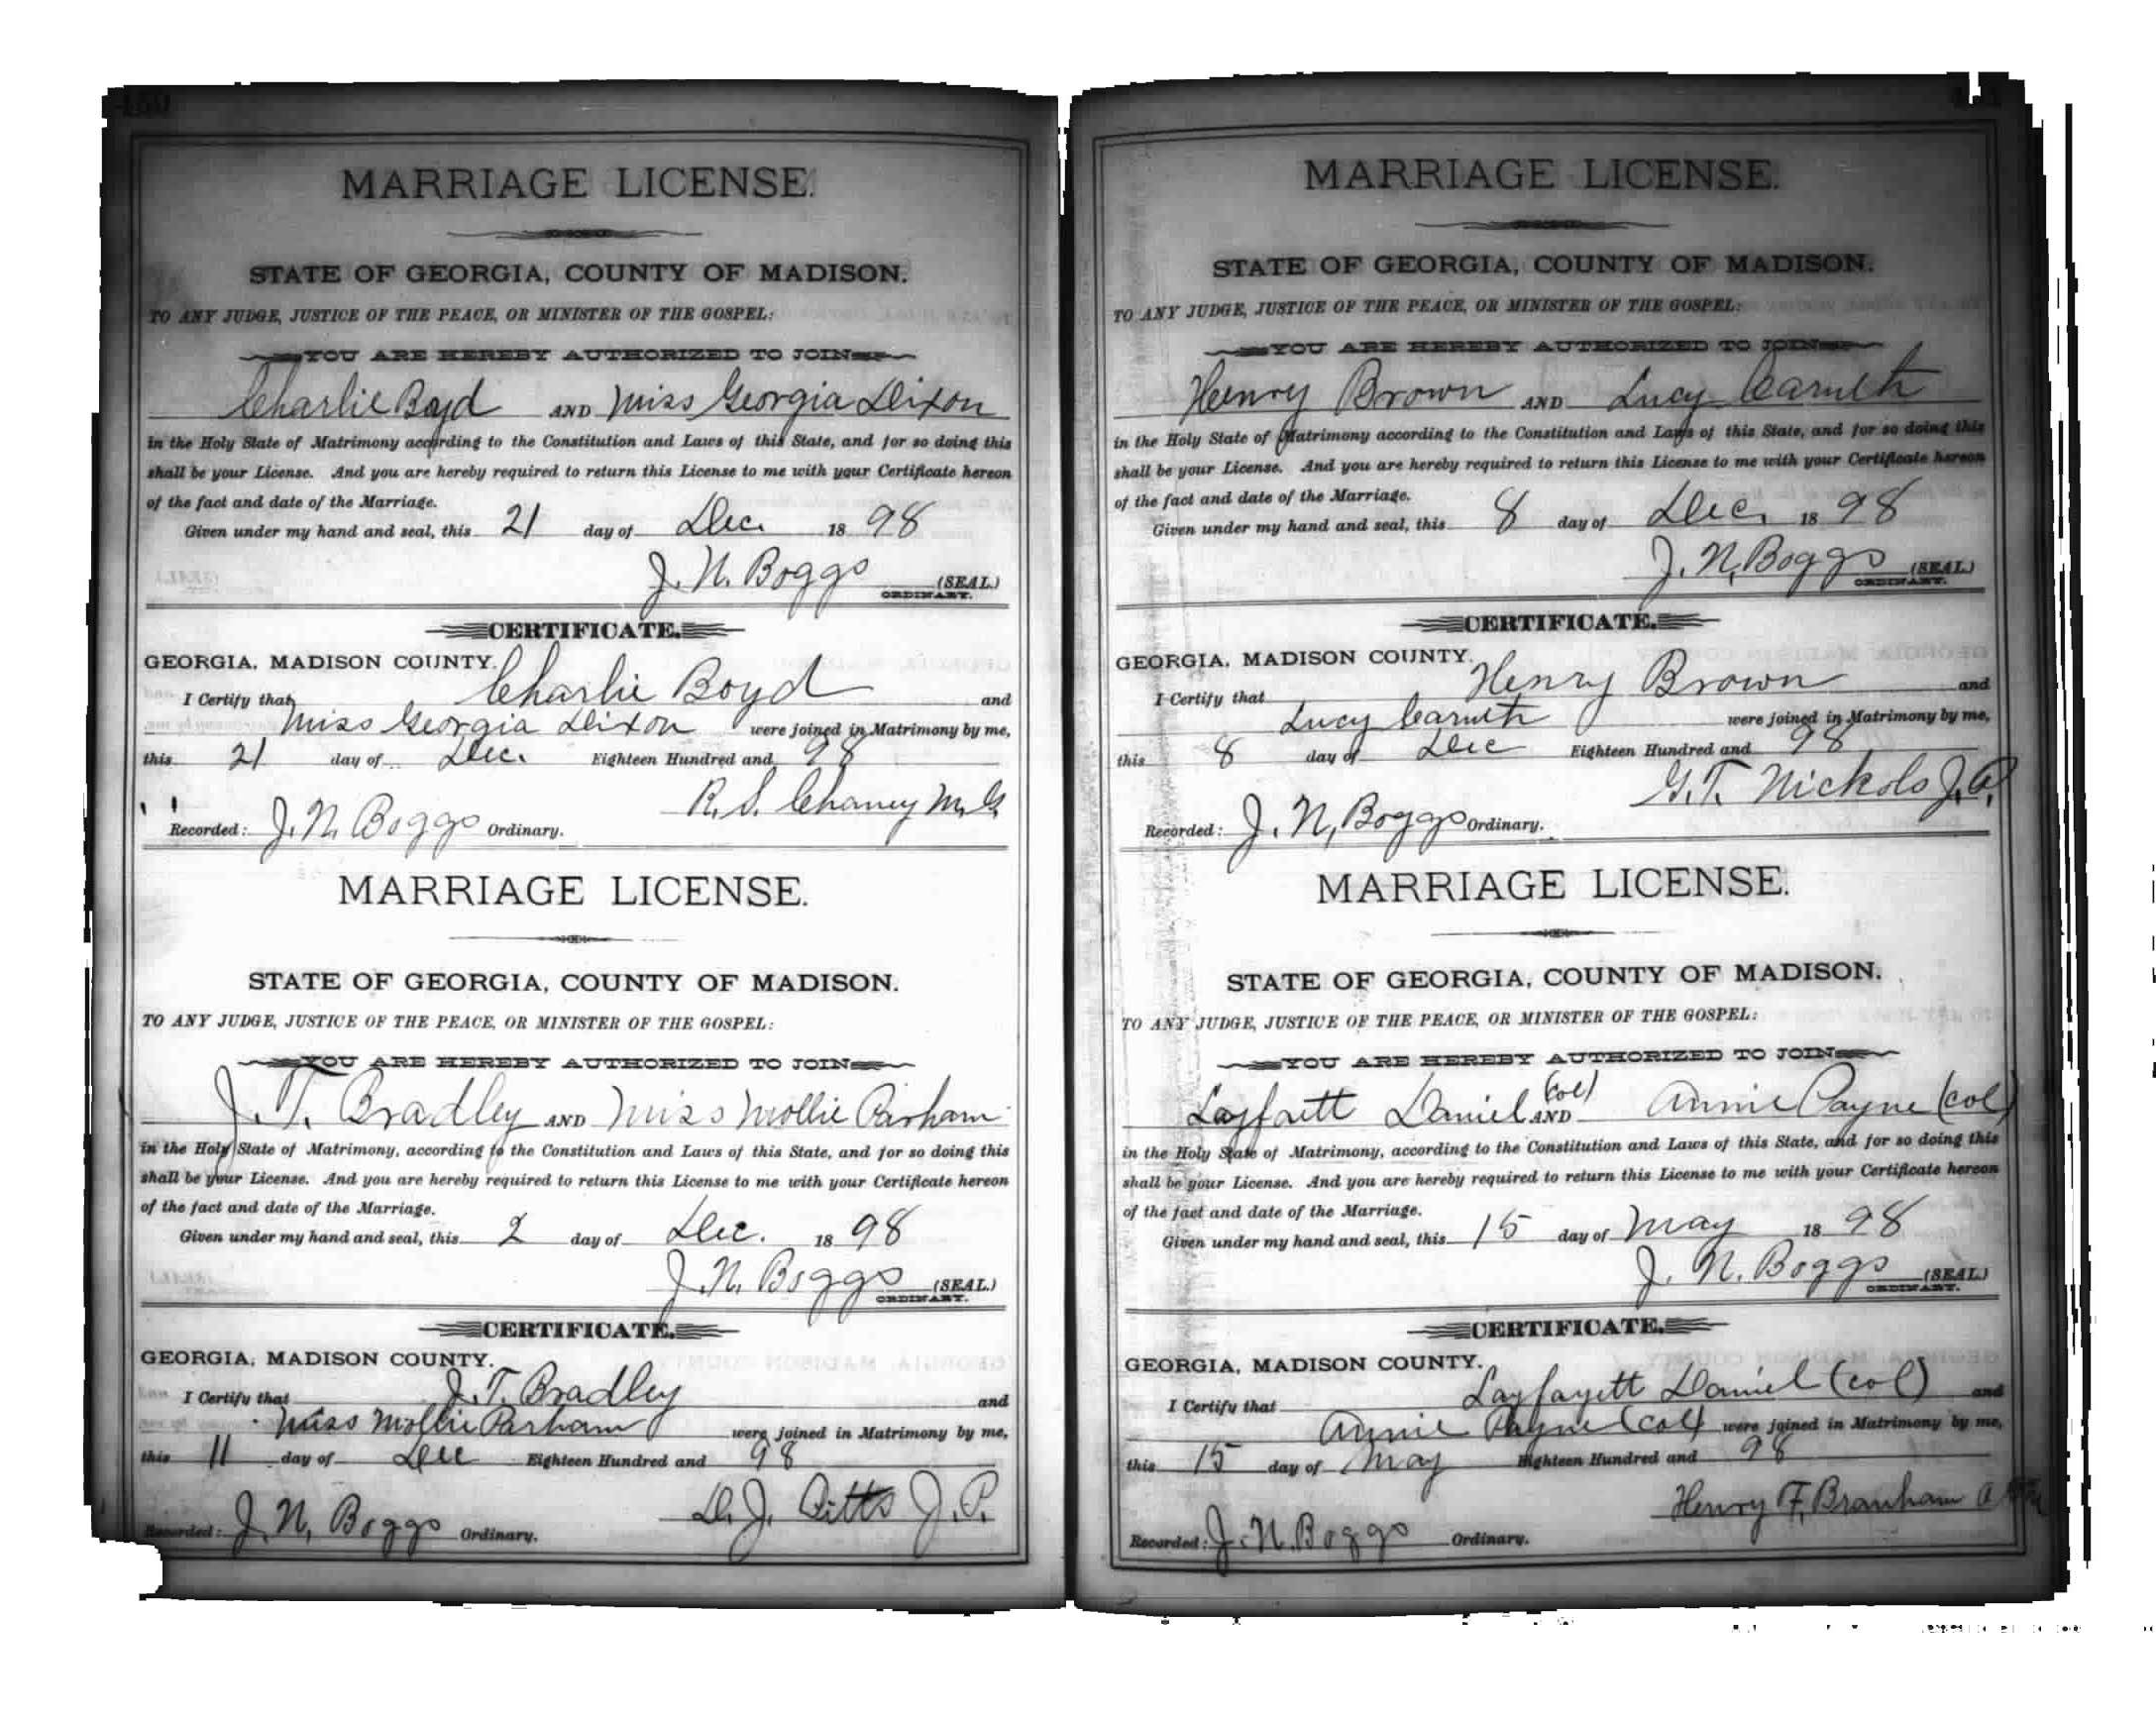 160
MARRIAGE LICENSE.
STATE OF GEORGIA, COUNTY OF MADISON.
TO ANY JUDGE, JUSTICE OF THE PEACE, OR MINISTER OF THE GOSPEL:
YOU ARE HEREBY AUTHORIZED TO JOIN
Charlie Boyd AND Miss Georgia Dixon
in the Holy State of Matrimony according to the Constitution and Laws of this State, and for so doing this
shall be your License. And you are hereby required to return this License to me with your Certificate hereon
of the fact and date of the Marriage.
Given under my hand and seal, this 21 day of Dec. 1898
J. N. Boggs (SEAL.)
ORDINARY.
CERTIFICATE.
GEORGIA, MADISON COUNTY.
I Certify that Charlie Boyd and
Miss Georgia Dixon were joined in Matrimony by me,
this 21 day of Dec. Eighteen Hundred and 98
R. S. Chaney M. G.
Recorded: J. N. Boggs Ordinary.
MARRIAGE LICENSE.
STATE OF GEORGIA, COUNTY OF MADISON.
TO ANY JUDGE, JUSTICE OF THE PEACE, OR MINISTER OF THE GOSPEL:
YOU ARE HEREBY AUTHORIZED TO JOIN
J. T. Bradley AND Miss Mollie Parham
in the Holy State of Matrimony, according to the Constitution and Laws of this State, and for so doing this
shall be your License. And you are hereby required to return this License to me with your Certificate hereon
of the fact and date of the Marriage.
Given under my hand and seal, this 2 day of Dec. 1898
J. N. Boggs (SEAL.)
ORDINARY.
CERTIFICATE.
GEORGIA, MADISON COUNTY.
I Certify that J. T. Bradley and
Miss Mollie Parham were joined in Matrimony by me,
this 11 day of Dec Eighteen Hundred and 98
D. J. Pitts J. P.
Recorded: J. N. Boggs Ordinary.
MARRIAGE LICENSE.
STATE OF GEORGIA, COUNTY OF MADISON.
TO ANY JUDGE, JUSTICE OF THE PEACE, OR MINISTER OF THE GOSPEL:
YOU ARE HEREBY AUTHORIZED TO JOIN
Henry Brown AND Lucy Caruth
in the Holy State of Matrimony according to the Constitution and Laws of this State, and for so doing this
shall be your License. And you are hereby required to return this License to me with your Certificate hereon
of the fact and date of the Marriage.
Given under my hand and seal, this 8 day of Dec. 1898
J. N. Boggs (SEAL.)
ORDINARY.
CERTIFICATE.
GEORGIA, MADISON COUNTY.
I Certify that Henry Brown and
Lucy Caruth were joined in Matrimony by me,
this 8 day of Dec Eighteen Hundred and 98
G. T. Nickols J. P.
Recorded: J. N. Boggs Ordinary.
MARRIAGE LICENSE.
STATE OF GEORGIA, COUNTY OF MADISON.
TO ANY JUDGE, JUSTICE OF THE PEACE, OR MINISTER OF THE GOSPEL:
YOU ARE HEREBY AUTHORIZED TO JOIN
Layfaett Daniel (col) AND Annie Payne (col)
in the Holy State of Matrimony, according to the Constitution and Laws of this State, and for so doing this
shall be your License. And you are hereby required to return this License to me with your Certificate hereon
of the fact and date of the Marriage.
Given under my hand and seal, this 15 day of May 1898
J. N. Boggs (SEAL.)
ORDINARY.
CERTIFICATE.
GEORGIA, MADISON COUNTY.
I Certify that Layfayett Daniel (col) and
Annie Payne (col) were joined in Matrimony by me,
this 15 day of May Eighteen Hundred and 98
Henry F. Branham
Recorded: J. N. Boggs Ordinary.